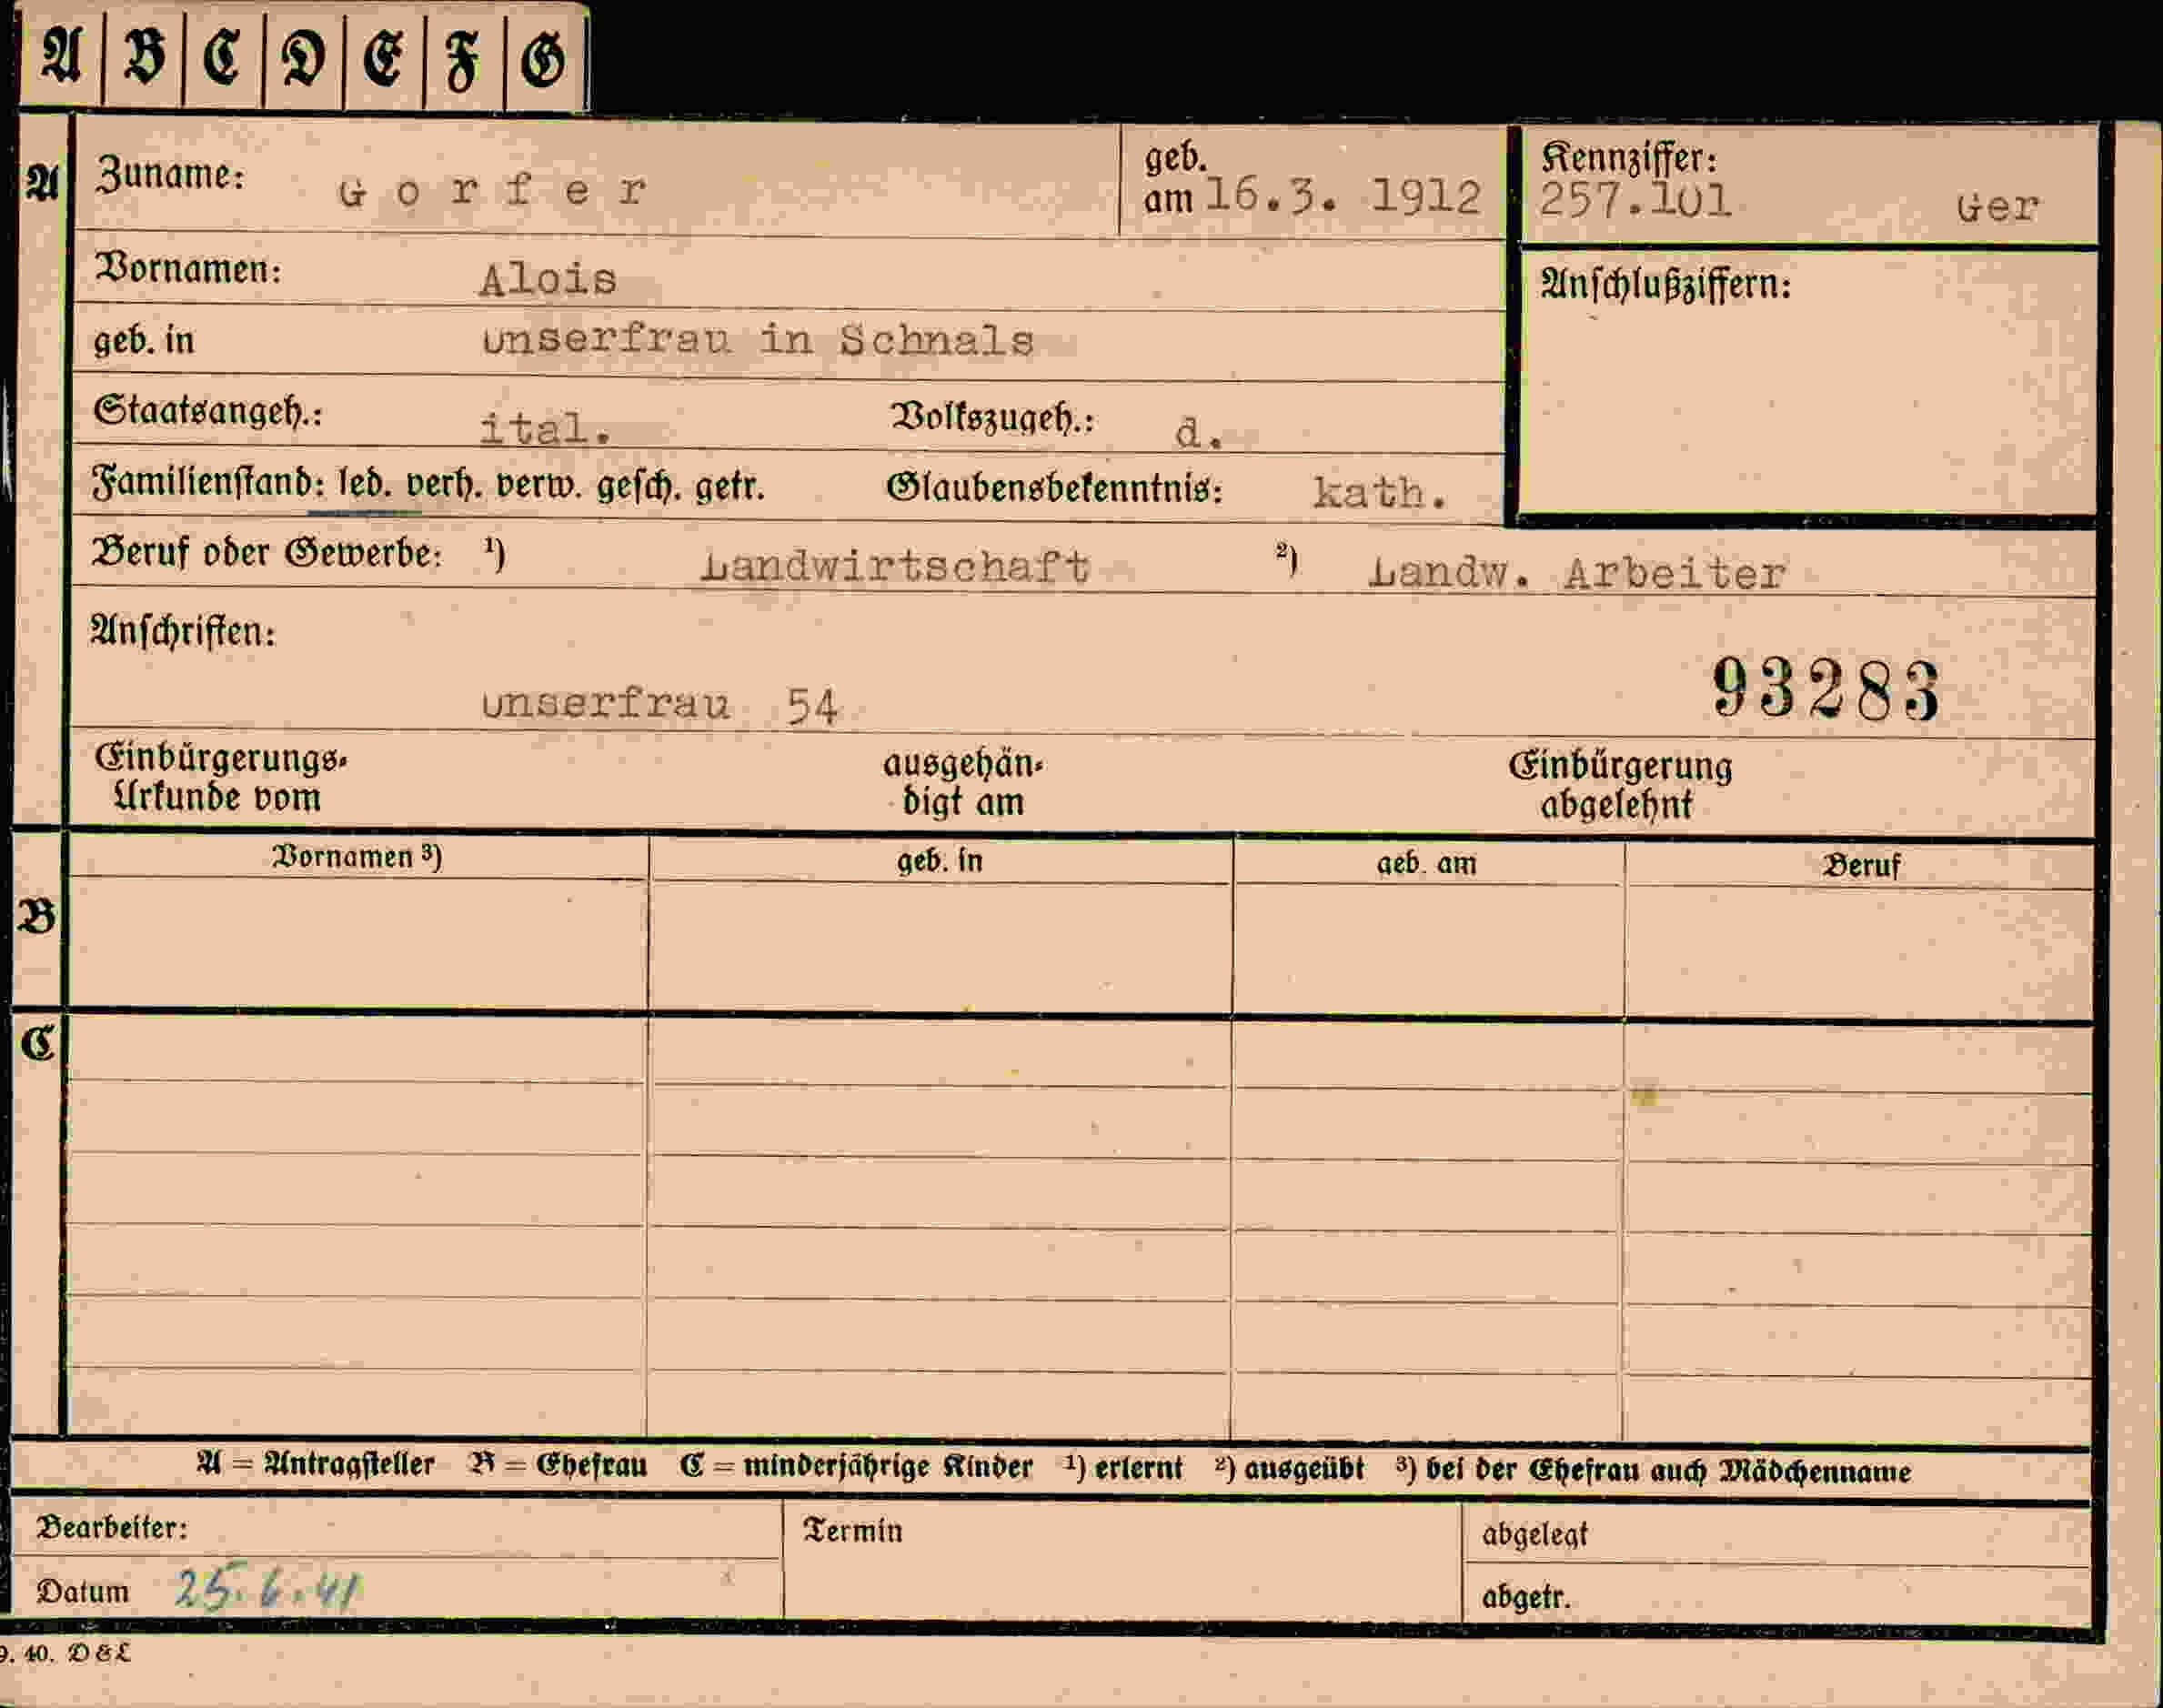 A B C D E F G
A Zuname: Gorfer geb. am 16.3. 1912 Kennziffer: 257.101 Ger
Vornamen: Alois Anschlußziffern:
geb. in unserfrau in Schnals
Staatsangeh.: ital. Volkszugeh.: d.
Familienstand: led. verh. verw. gesch. getr. Glaubensbekenntnis: kath.
Beruf oder Gewerbe: ¹) Landwirtschaft ²) Landw. Arbeiter
Anschriften:
unserfrau 54 93283
Einbürgerungs- ausgehän- Einbürgerung
Urkunde vom digt am abgelehnt
Vornamen ³) geb. in geb. am Beruf
B
C
A = Antragsteller B = Ehefrau C = minderjährige Kinder ¹) erlernt ²) ausgeübt ³) bei der Ehefrau auch Mädchenname
Bearbeiter: Termin abgelegt
Datum 25.6.41 abgetr.
9. 40. D & L